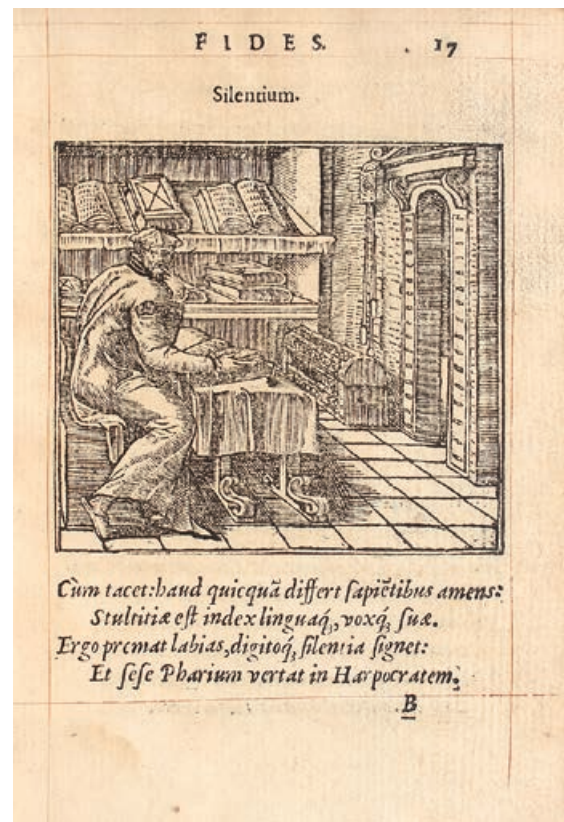 FIDES. 17
Silentium.
Cùm tacet: haud quicquā differt ſapiētibus amens:
Stultitiæ eſt index linguaq́;, voxq́; ſuæ.
Ergo premat labias, digitoq́; ſilentia ſignet:
Et ſeſe Pharium vertat in Harpocratem.
B